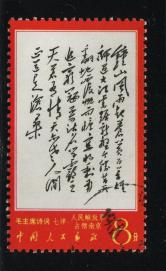 鐘山風雨起蒼黄百万雄
師过大江虎踞龍盤今勝昔天
翻地覆慨而慷宜将剩勇
追窮寇不可沽名学霸王
天若有情天亦老人间
正道是滄桑
毛主席诗词 七律 人民解放军
占领南京
中国人民邮政 8分